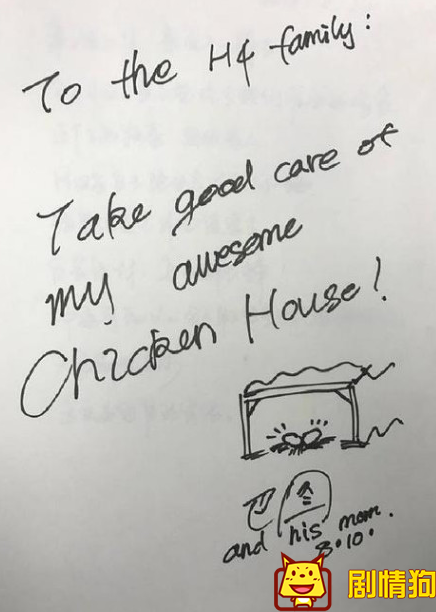 To the H4 family:
Take good care of
my awesome
Chicken House!
and his mom.
8.10.
剧情狗